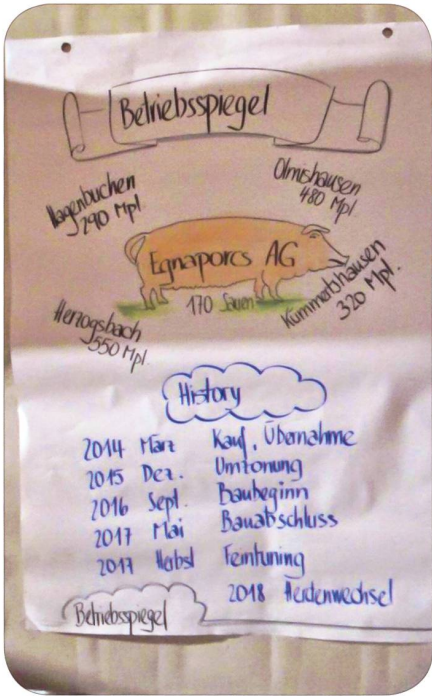 Betriebsspiegel
Hagenbuchen
290 Mpl.
Olmishausen
480 Mpl.
Egnaporcs AG
170 Sauen
Herzogsbach
550 Mpl.
Kümmertshausen
320 Mpl.
History
2014 März Kauf, Übernahme
2015 Dez. Umzonung
2016 Sept. Baubeginn
2017 Mai Bauabschluss
2017 Herbst Feintuning
2018 Herdenwechsel
Betriebsspiegel